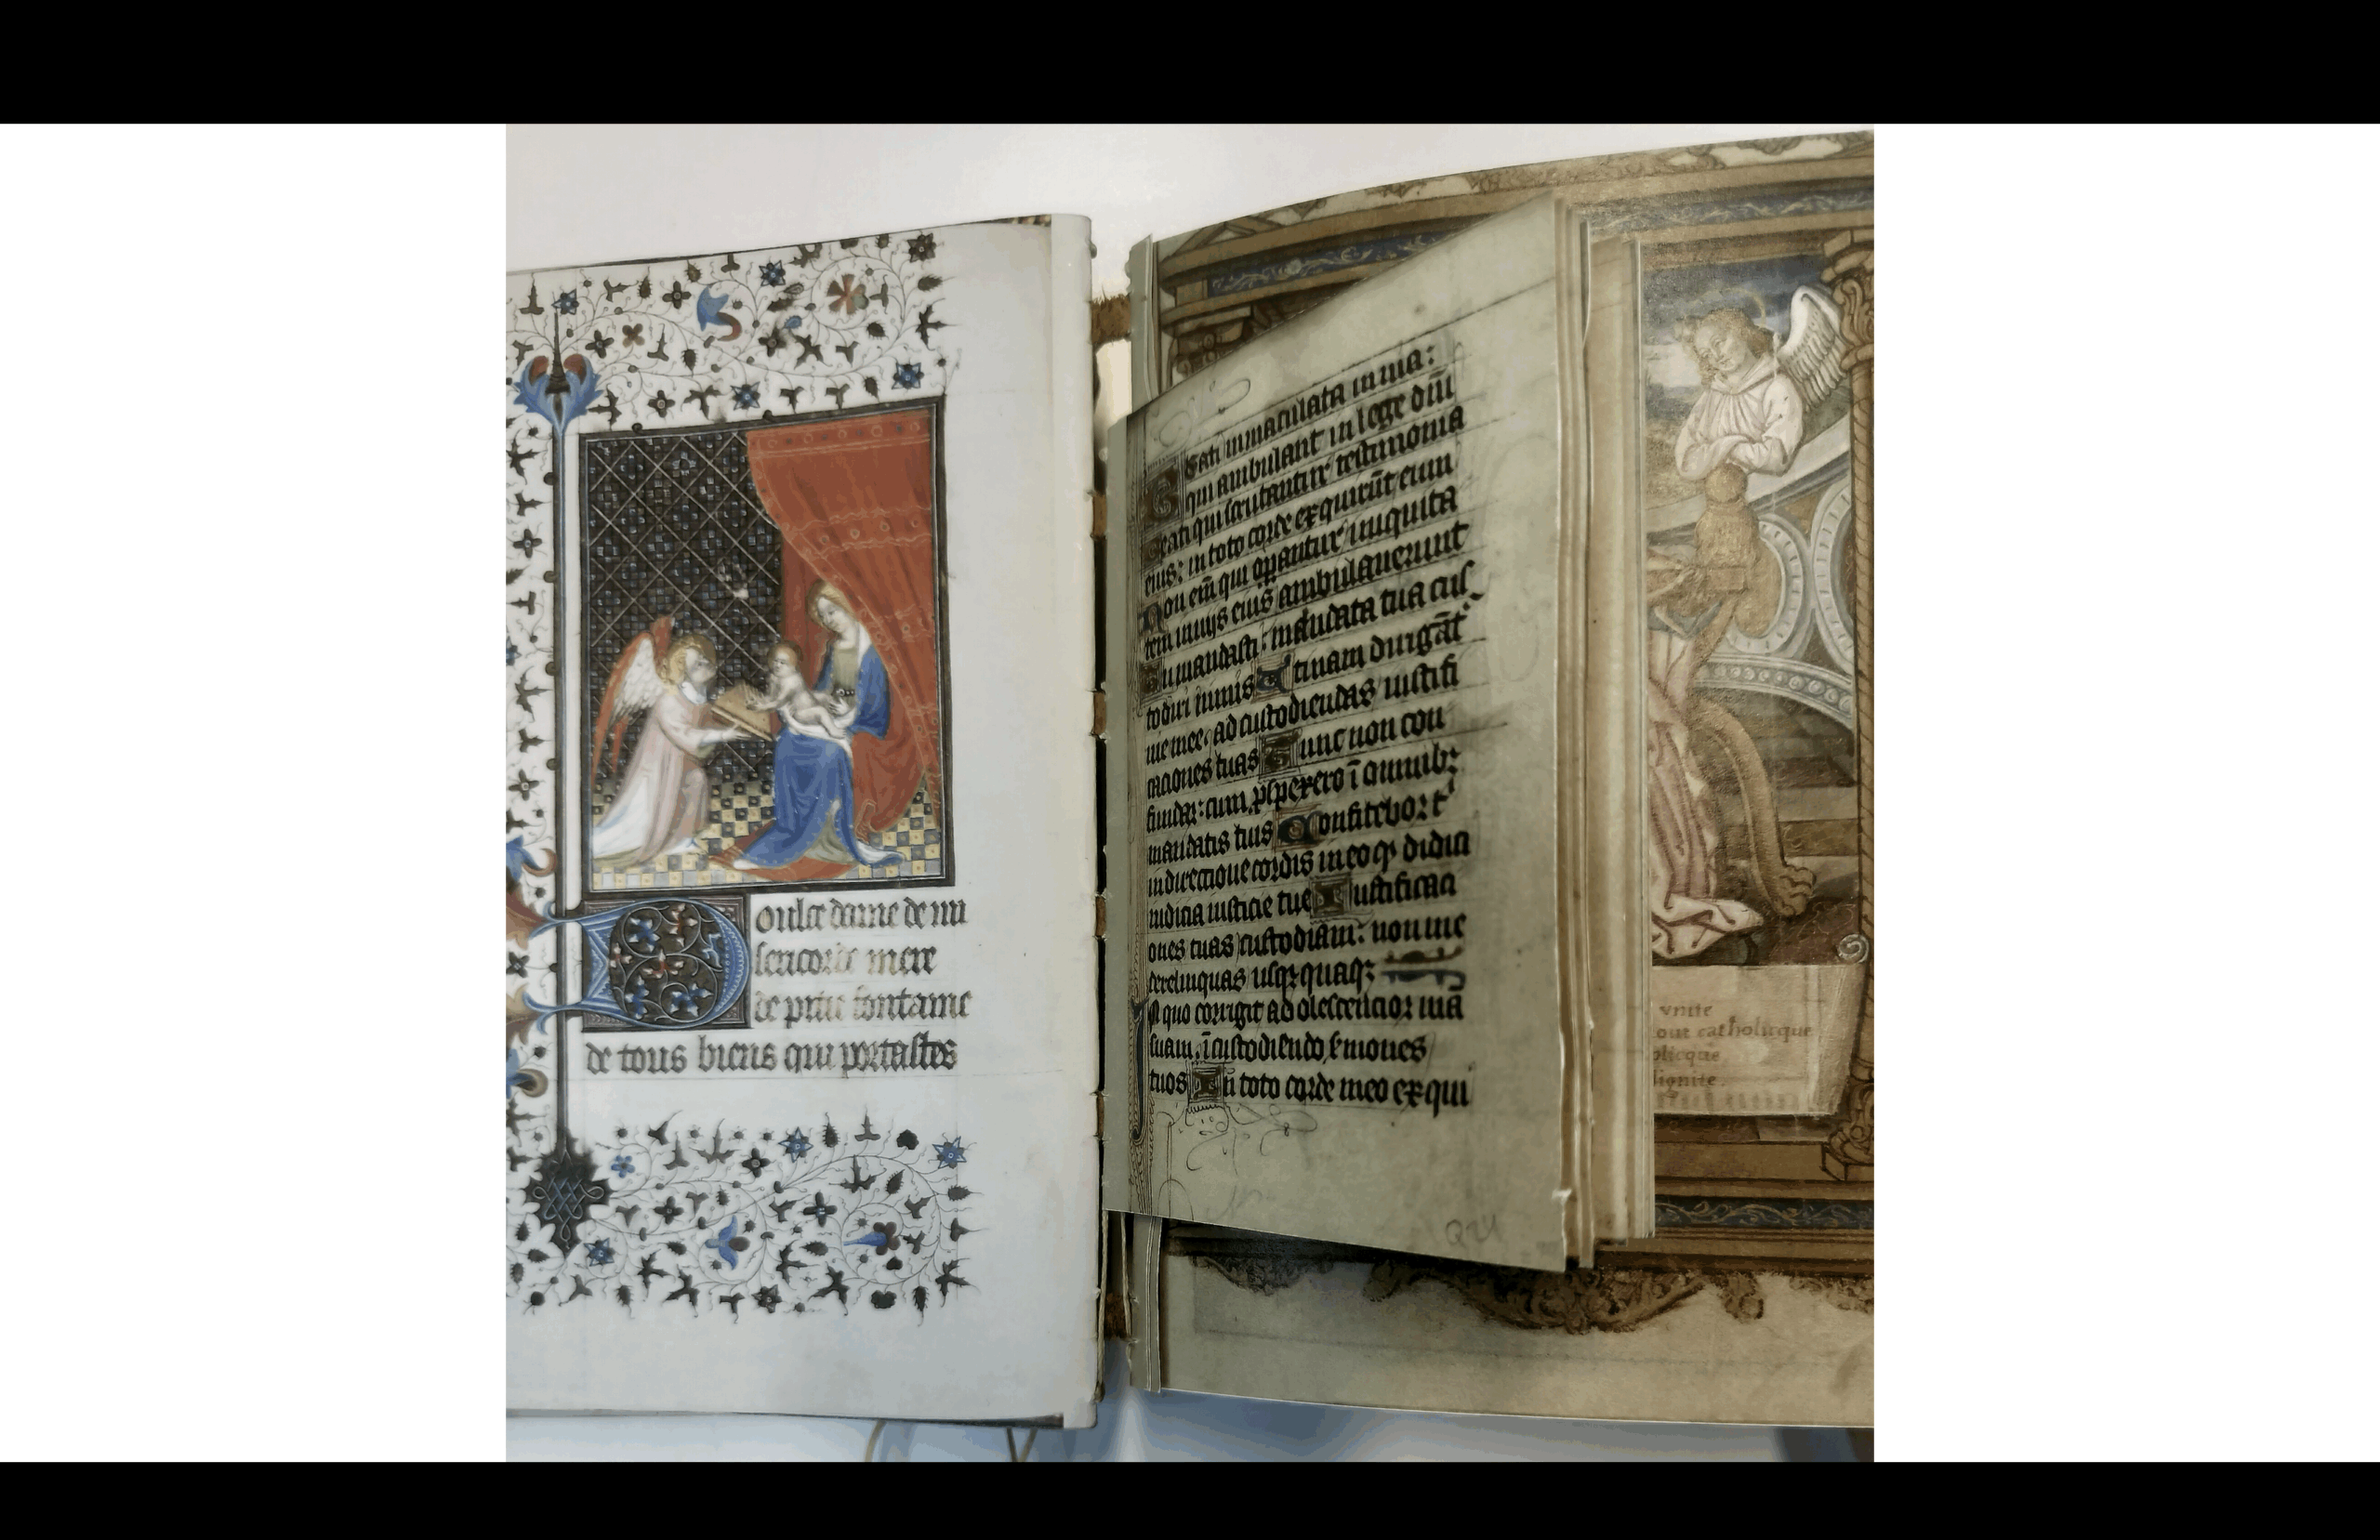 Doulce dame de mi
sericorde mere
de pitie fontaine
de tous biens qui portastes
Beati inmaculata in uia:
qui ambulant in lege dn̄i
Beati qui scrutantur testimonia
eius: in toto corde exquirūt eum
Non em̄ qui opantur iniquita
tem in uijs eius ambulauerunt
Tu mandasti: mandata tua cus
todiri nimis Utinam dirigāt
uie mee: ad custodiendas iustifi
caciones tuas Tunc non con
fundar: cum p̱spexero ī omnibꝫ
mandatis tuis Confitebor t
in directione cordis in eo qꝫ didici
iudicia iusticie tue Iustificaci
ones tuas custodiam: non me
derelinquas usqꝫ quaqꝫ
In quo corrigit adolescencior uiā
suam: ī custodiendo s̄mones
tuos In toto corde meo exqui
Q24
vnite
out catholicque
olicque
dignite.